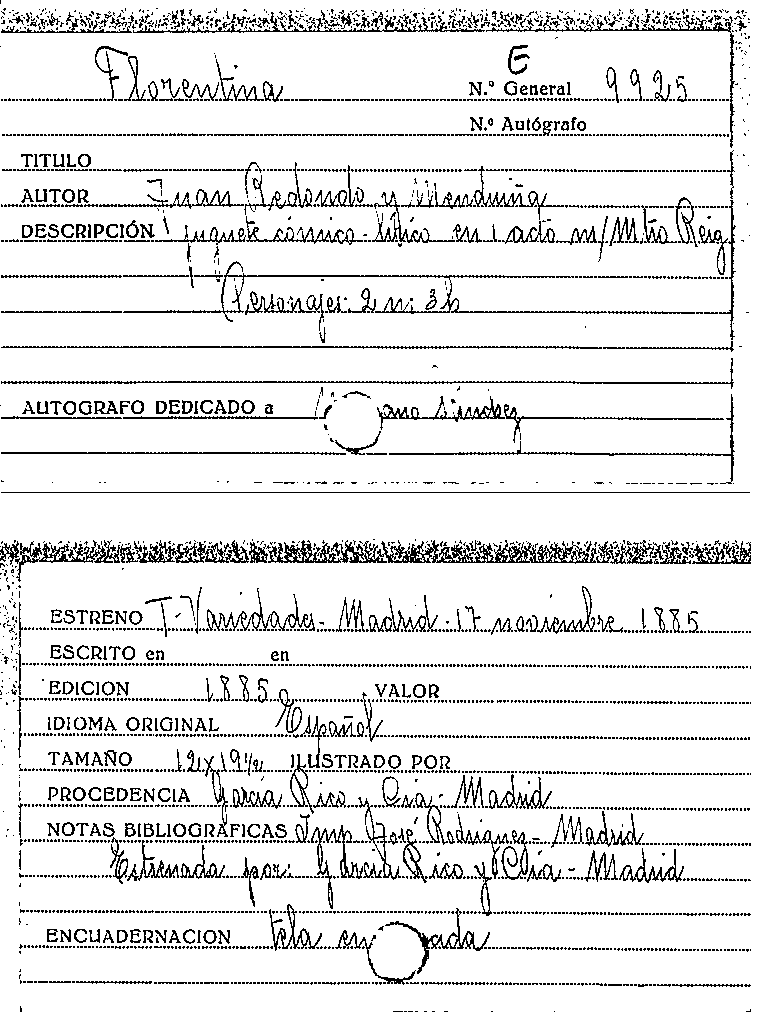 Florentina
E
N.º General 9925
N.º Autógrafo
TITULO
AUTOR Juan Redondo y Menduiña
DESCRIPCIÓN juguete cómico-lírico en 1 acto m/ Mtro Reig
Personajes: 2 m: 3h
AUTOGRAFO DEDICADO a ano Sánchez
ESTRENO T- Variedades- Madrid - 17 noviembre 1885
ESCRITO en en
EDICION 1885 VALOR
IDIOMA ORIGINAL Español
TAMAÑO 12x19½ ILUSTRADO POR
PROCEDENCIA García Rico y Cía - Madrid
NOTAS BIBLIOGRAFICAS Imp José Rodríguez - Madrid
Estrenada por: García Rico y Cía - Madrid
ENCUADERNACION tela en ada